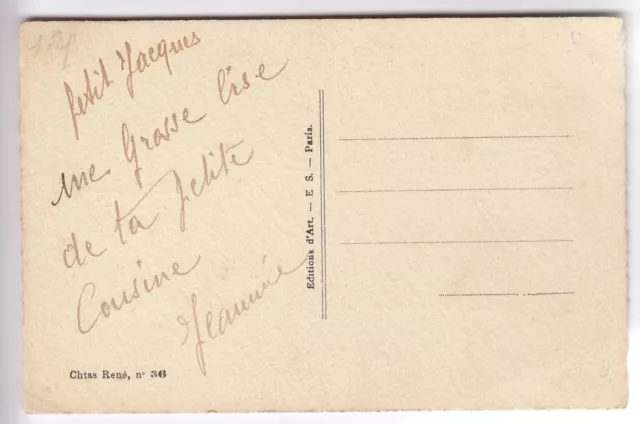 petit Jacques
une Grosse bise
de ta petite
Cousine
Jeannine
Editions d'Art. — E S. — Paris.
Chtas René, n° 36